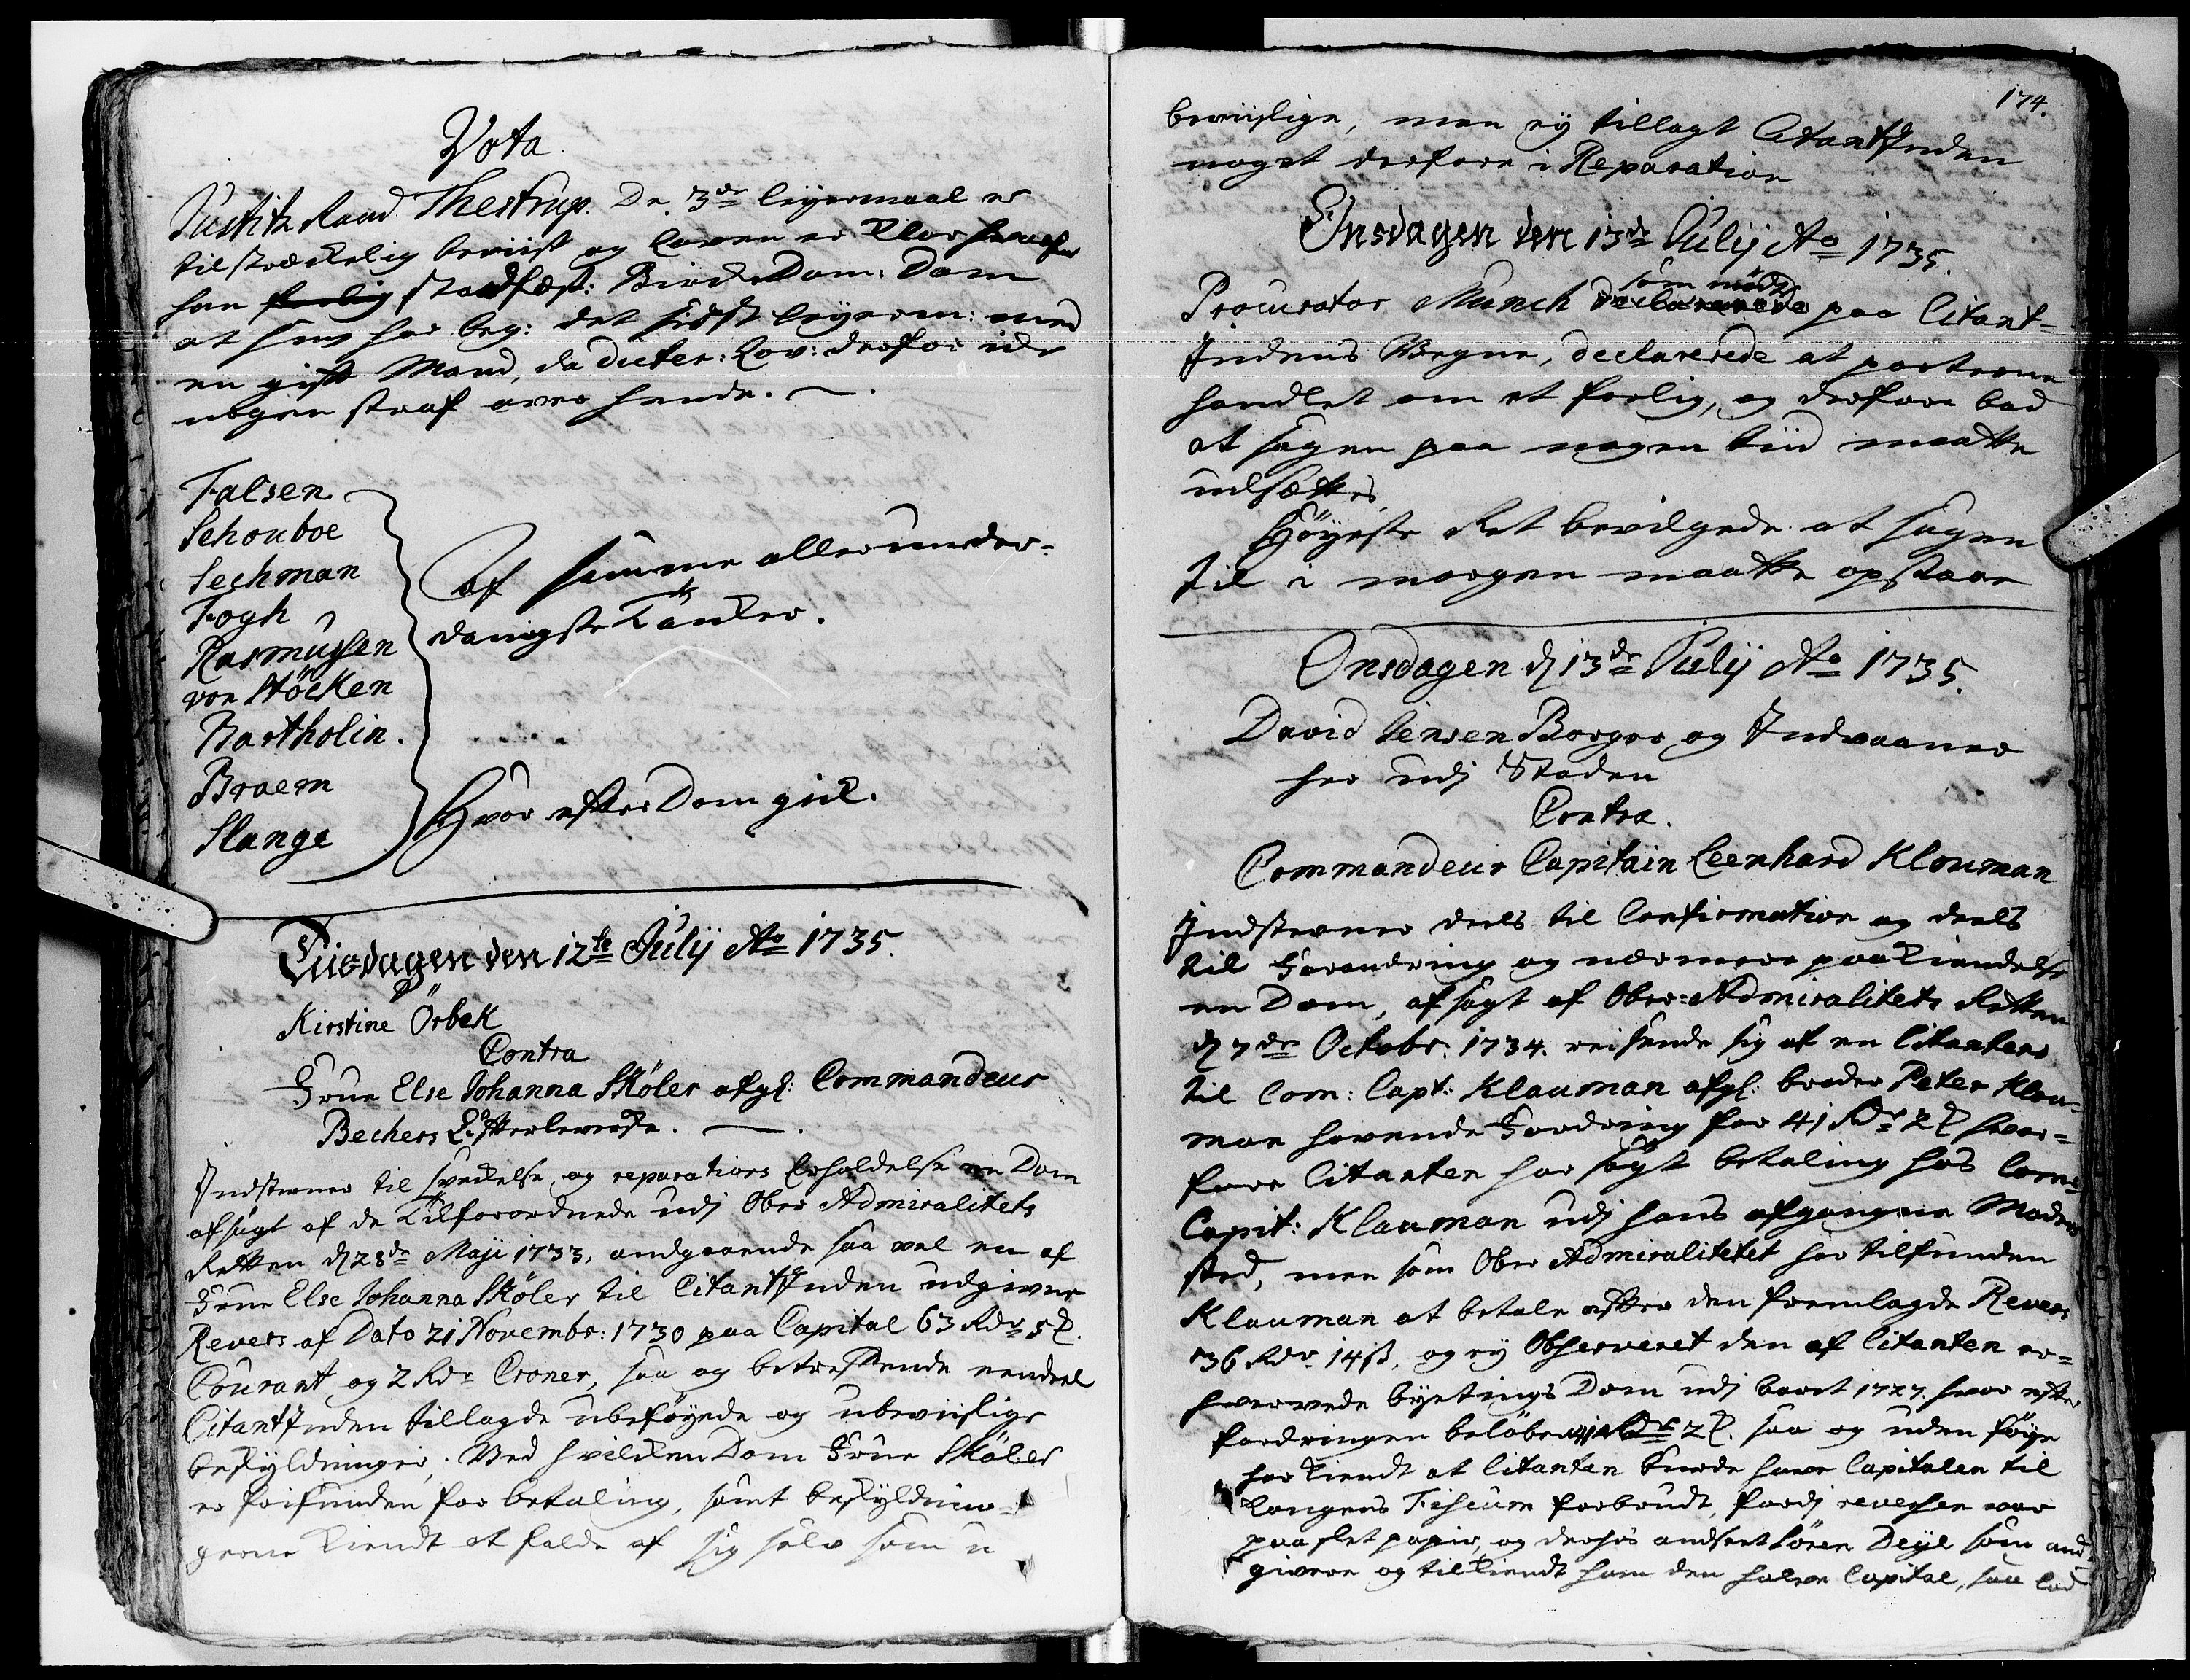 Vota.
Justitz Raad Thestrup. De 3de leyermaal er
tilstræckelig beviist og loven er klar
han forlig stadfæst: Birke Dom: Dom
at hun har beg: det sidste leyerm: med
en gift Mand, da dicter: Lov: derfor icke
nogen straf over hende.
Falsen
Schouboe
Sechman
Fogh
Rasmussen
von Stöcken
Bartholin.
Braem
Slange
Af samme allerunder-
danigste Tancker.
Hvor efter Dom gick.
Tiisdagen den 12te Julij Ao 1735.
Kirstine Örbek
Contra
Frue Else Johanna Sköler afgl: Commandeur
Bechers Efterleverske.
Indstevner til sveckelse, og reparations Erholdelse en Dom
afsagt af de Tilforordnede udj Ober Admiralitets
Retten d 28de Maji 1733, andgaaende saa vel en af
Frue Else Johanna Sköler til CitantInden udgivne
Revers af Dato 21 Novembr: 1730 paa Capital 63 Rdr 5 ₰.
Courant og 2 Rdr Croner, saa og betreffende eendeel
CitantInden tillagde ubeföyede og ubeviislige
beskyldninger. Ved hvilken Dom Frue Sköler
er frifunden for betaling, samt beskyldnin-
gerne kiendt at falde af sig selv som u
174.
beviislige, men ey tillagt CitantInden
noget derfore i Reparation
Onsdagen den 13de Julij Ao 1735.
som mödte
Procurator Munch declarerede paa Citant-
Indens Vegne, declarerede at parterne
handlet om et forlig, og derfore bad
at sagen paa nogen tiid maatte
udsættes
Höyeste Ret bevilgede at sagen
til i morgen maatte opstaae
Onsdagen d 13de Julij Ao 1735.
David Jensen Borger og Indvaaner
her udj Staden
Contra.
Commandeur Capitain Leenhard Klouman
Indstevner deels til Confirmation og deels
til Forandring og nærmere paakiendelse
en Dom, afsagt af Ober-Admiralitets Retten
d 7de Octobr: 1734. reisende sig af en Citantens
til Com: Capt: Klauman afgl: broder Peter Klou-
man havende Fordring for 41 Rdr 2 ₰ hvor-
fore Citanten har sögt betaling hos Com-
Capit: Klauman udj hans afgangne Moders
sted, men som Ober Admiralitetet har tilfunden
Klauman at betale efter den fremlagde Revers
36 Rdr 14 ß, og ey Observeret den af Citanten er-
hvervede byetings Dom udj Aaret 1727. hvor efter
fordringen beløber 41 Rdr 2 ₰. saa og uden föye
har kiendt at Citanten burde have Capitalen til
Kongens Fiscum forbrudt, fordj reversen var
paa slet papir, og derhos andseet Sören Deyl som and-
givere og tilkiendt ham den halve Capital, saa lod